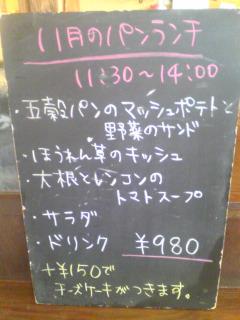 11月のパンランチ
11:30～14:00
・五穀パンのマッシュポテトと
野菜のサンド
・ほうれん草のキッシュ
・大根とレンコンの
トマトスープ
・サラダ
・ドリンク ¥980
+¥150で
チーズケーキがつきます。